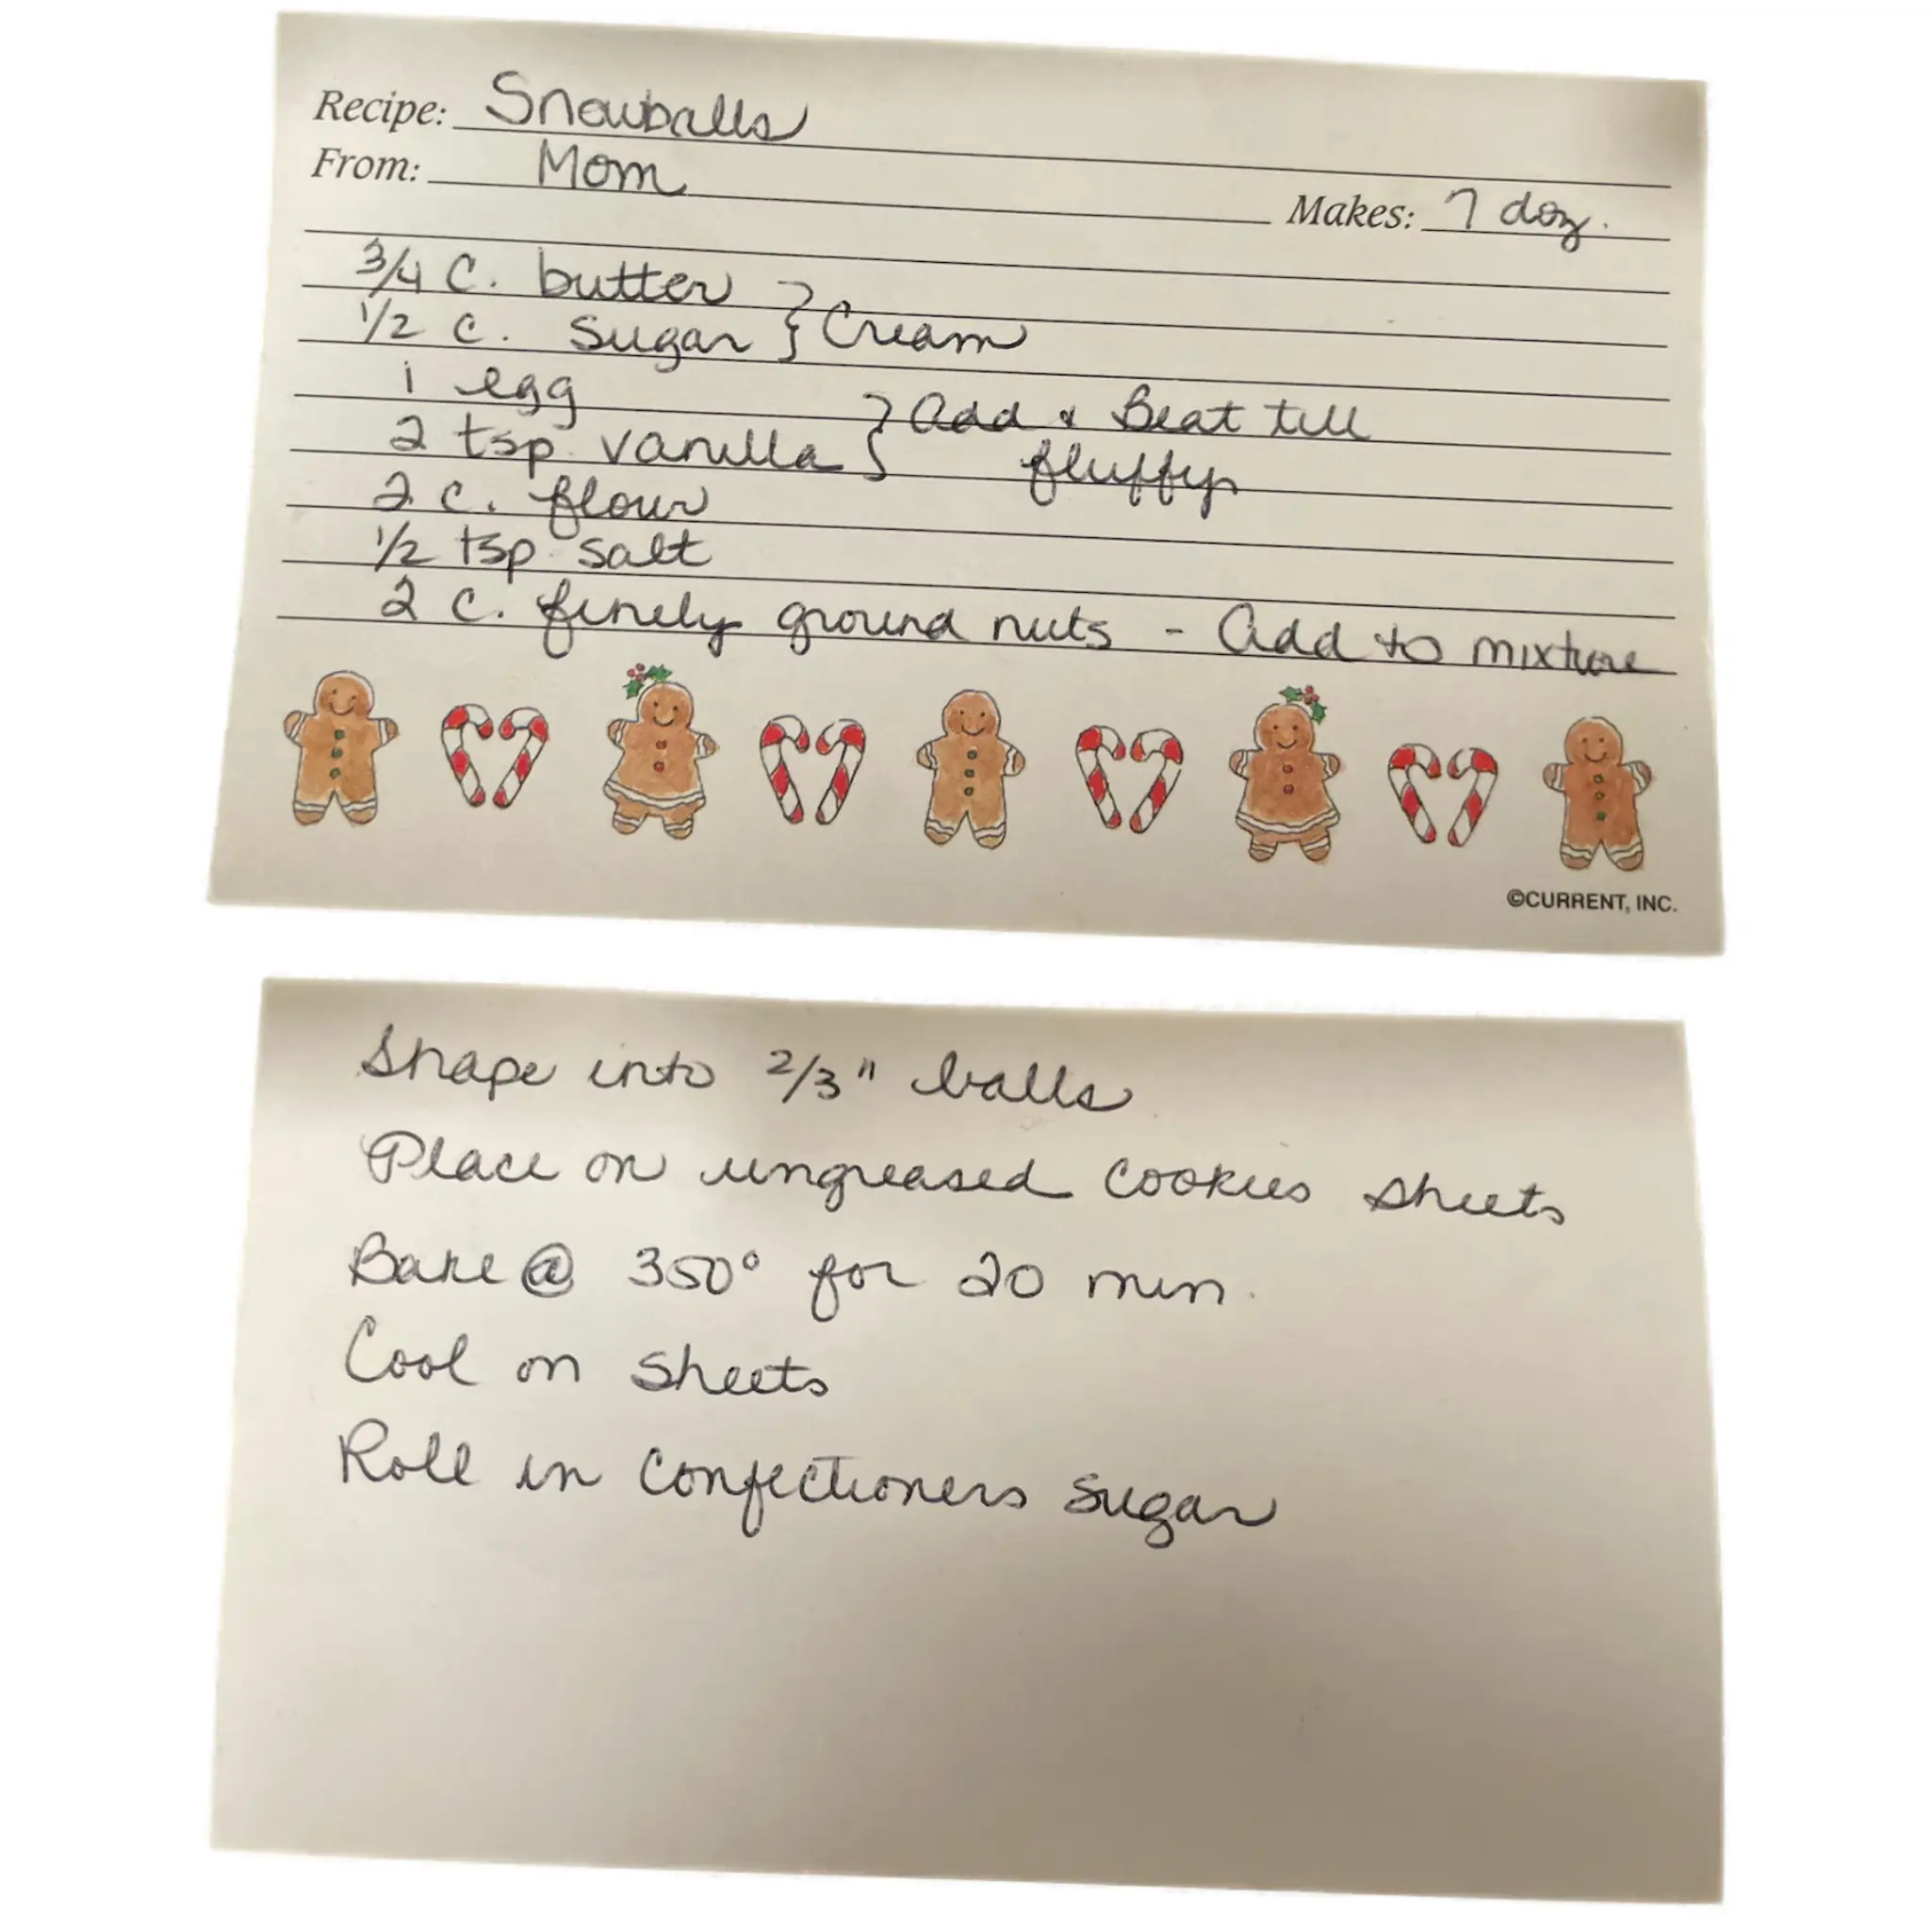 Recipe: Snowballs
From: Mom
Makes: 7 doz.
3/4 C. butter } Cream
1/2 c. sugar
1 egg } Add & Beat till
2 tsp. vanilla fluffy
2 c. flour
1/2 tsp. salt
2 C. finely ground nuts - Add to mixture
©CURRENT, INC.
Shape into 2/3" balls
Place on ungreased Cookies sheets
Bake @ 350° for 20 min.
Cool on sheets
Roll in Confectioners sugar